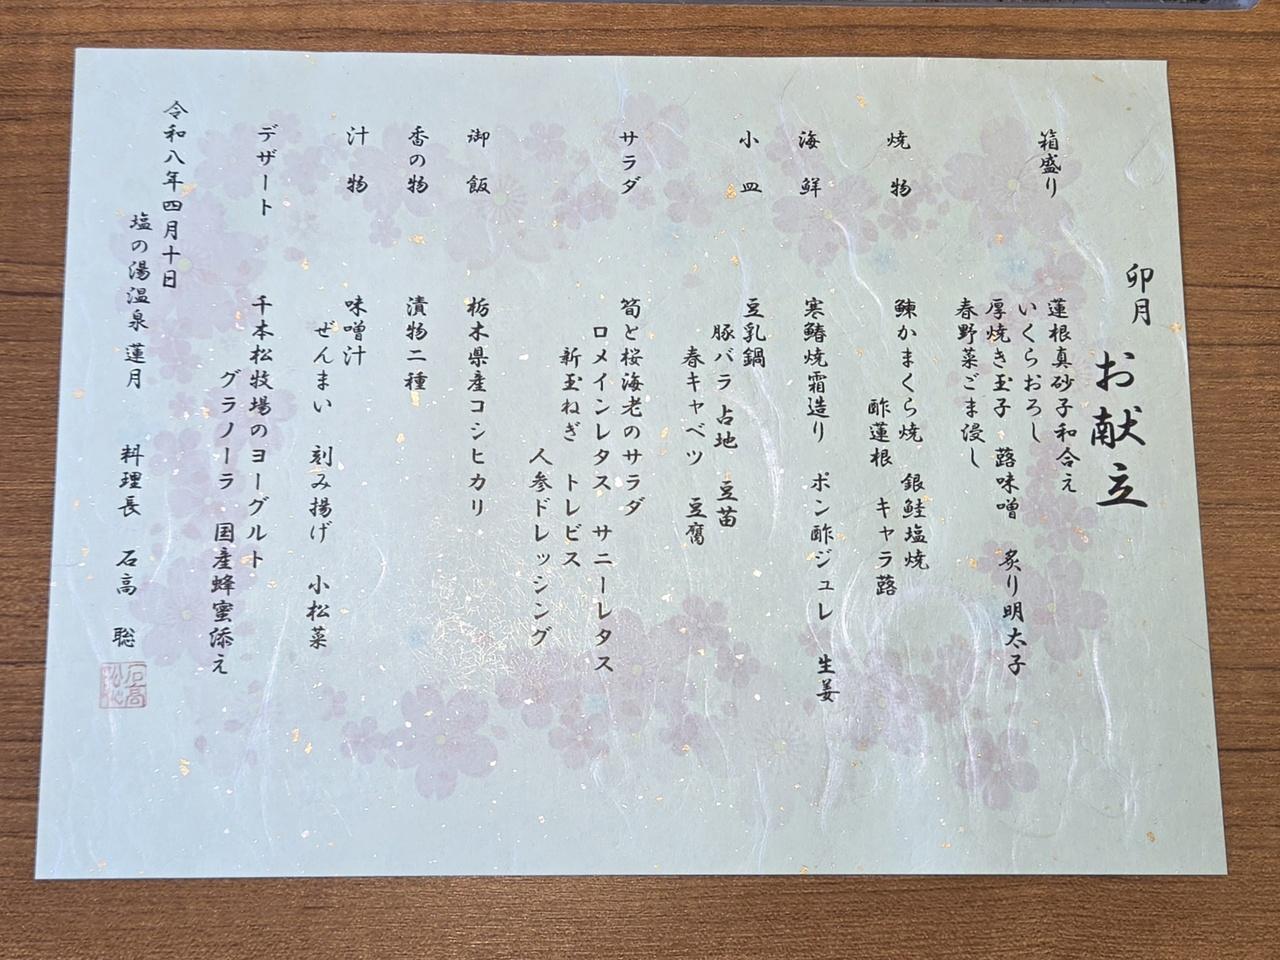 卯月
お献立
箱盛り
蓮根真砂子和合え
いくらおろし
厚焼き玉子 蕗味噌 炙り明太子
春野菜ごま浸し
焼物
鰊かまくら焼 銀鮭塩焼
酢蓮根 キャラ蕗
海鮮
寒鰆焼霜造り ポン酢ジュレ 生姜
小皿
豆乳鍋
豚バラ 占地 豆苗
春キャベツ 豆腐
サラダ
筍と桜海老のサラダ
ロメインレタス サニーレタス
新玉ねぎ トレビス
人参ドレッシング
御飯
栃木県産コシヒカリ
香の物
漬物二種
汁物
味噌汁
ぜんまい 刻み揚げ 小松菜
デザート
千本松牧場のヨーグルト
グラノーラ 国産蜂蜜添え
令和八年四月十日
塩の湯温泉 蓮月 料理長 石高 聡